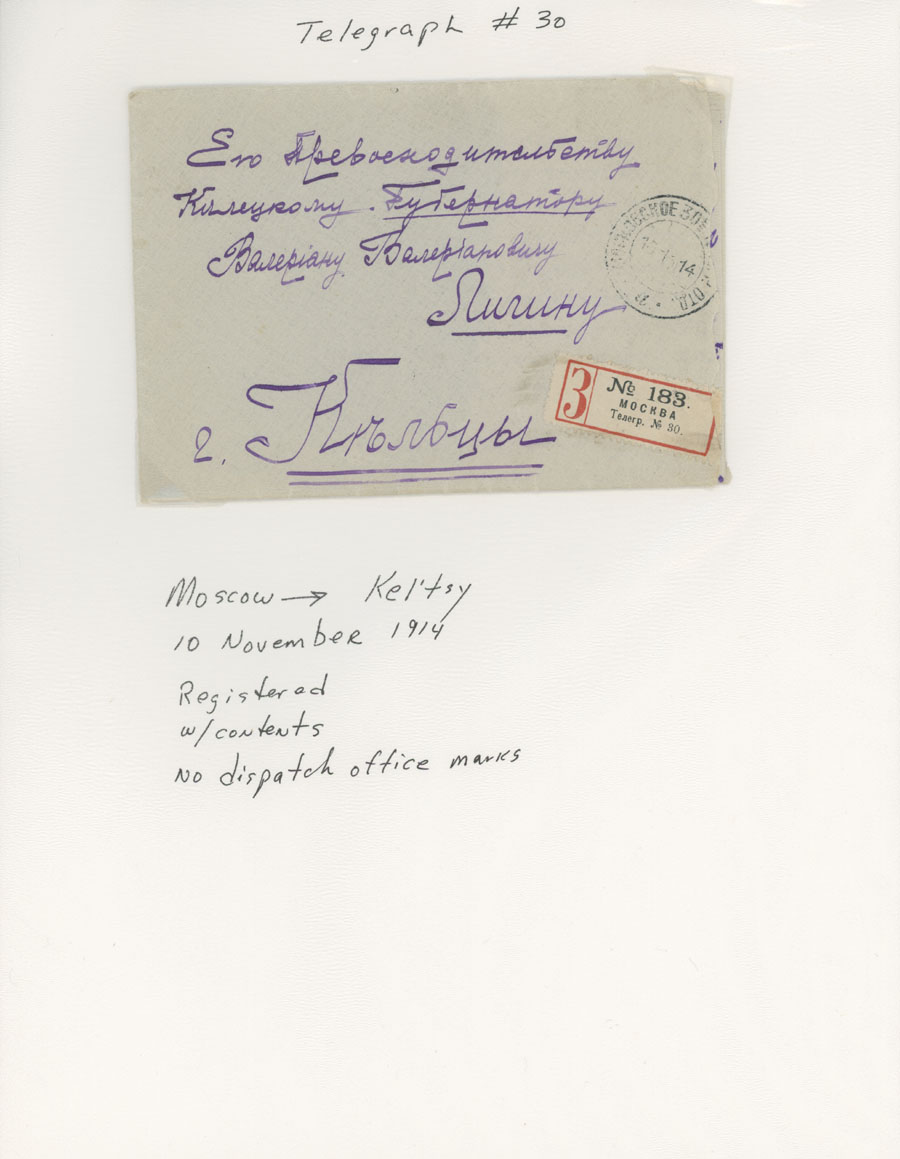 Telegraph # 30
Его Превосходительству
Келецкому Губернатору
Валеріану Валеріановичу
Лигину
г. Кѣльцы
14
З
№ 183.
МОСКВА
Телегр. № 30.
Moscow → Kel'tsy
10 November 1914
Registered
w/contents
No dispatch office marks